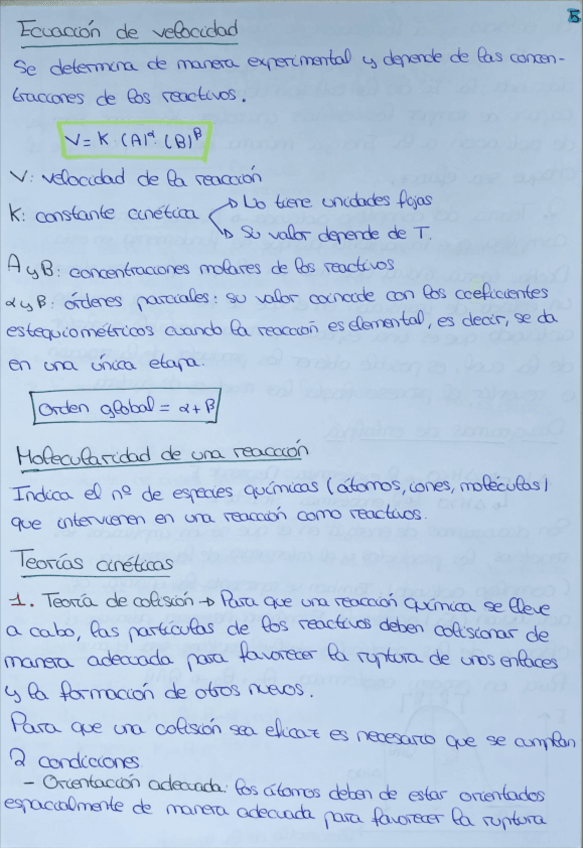 5
Ecuación de velocidad
Se determina de manera experimental y depende de las concen-
traciones de los reactivos.
V = K · (A)^α (B)^β
V: velocidad de la reacción
K: constante cinética → No tiene unidades fijas
→ Su valor depende de T.
A y B: concentraciones molares de los reactivos
α y β: órdenes parciales: su valor coincide con los coeficientes
estequiométricos cuando la reacción es elemental, es decir, se da
en una única etapa.
Orden global = α + β
Molecularidad de una reacción
Indica el nº de especies químicas (átomos, iones, moléculas)
que intervienen en una reacción como reactivos.
Teorías cinéticas
1. Teoría de colisión → Para que una reacción química se lleve
a cabo, las partículas de los reactivos deben colisionar de
manera adecuada para favorecer la ruptura de unos enlaces
y la formación de otros nuevos.
Para que una colisión sea eficaz es necesario que se cumplan
2 condiciones
- Orientación adecuada: los átomos deben de estar orientados
espacialmente de manera adecuada para favorecer la ruptura